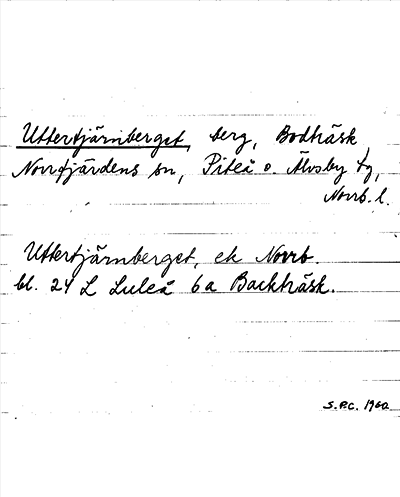 Uttertjärnberget, berg, Bodträsk,
Norrfjärdens sn, Piteå o. Älvsby tg,
Norrb. l.
Uttertjärnberget, ek Norrb.
bl. 24 L Luleå 6a Backträsk.
S.P.C. 1960